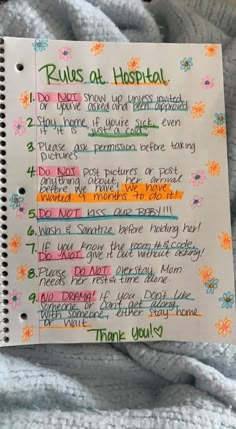 Rules at Hospital
1. Do NOT show up unless invited
or you've asked and been approved
2. Stay home if you're sick, even
if it is "just a cold"
3. Please ask permission before taking
pictures.
4. Do NOT post pictures or post
anything about her arrival
before we have! We have
waited 9 months to do it!
5. DO NOT KISS OUR BABY!!!
6. Wash & Sanitize before holding her!
7. If you know the room # & code,
Do NOT give it out without asking!
8. Please DO NOT overstay. Mom
needs her rest & time alone.
9. NO DRAMA! If you Don't Like
Someone or Can't get along
with Someone, either stay home
or Wait
Thank you!♡